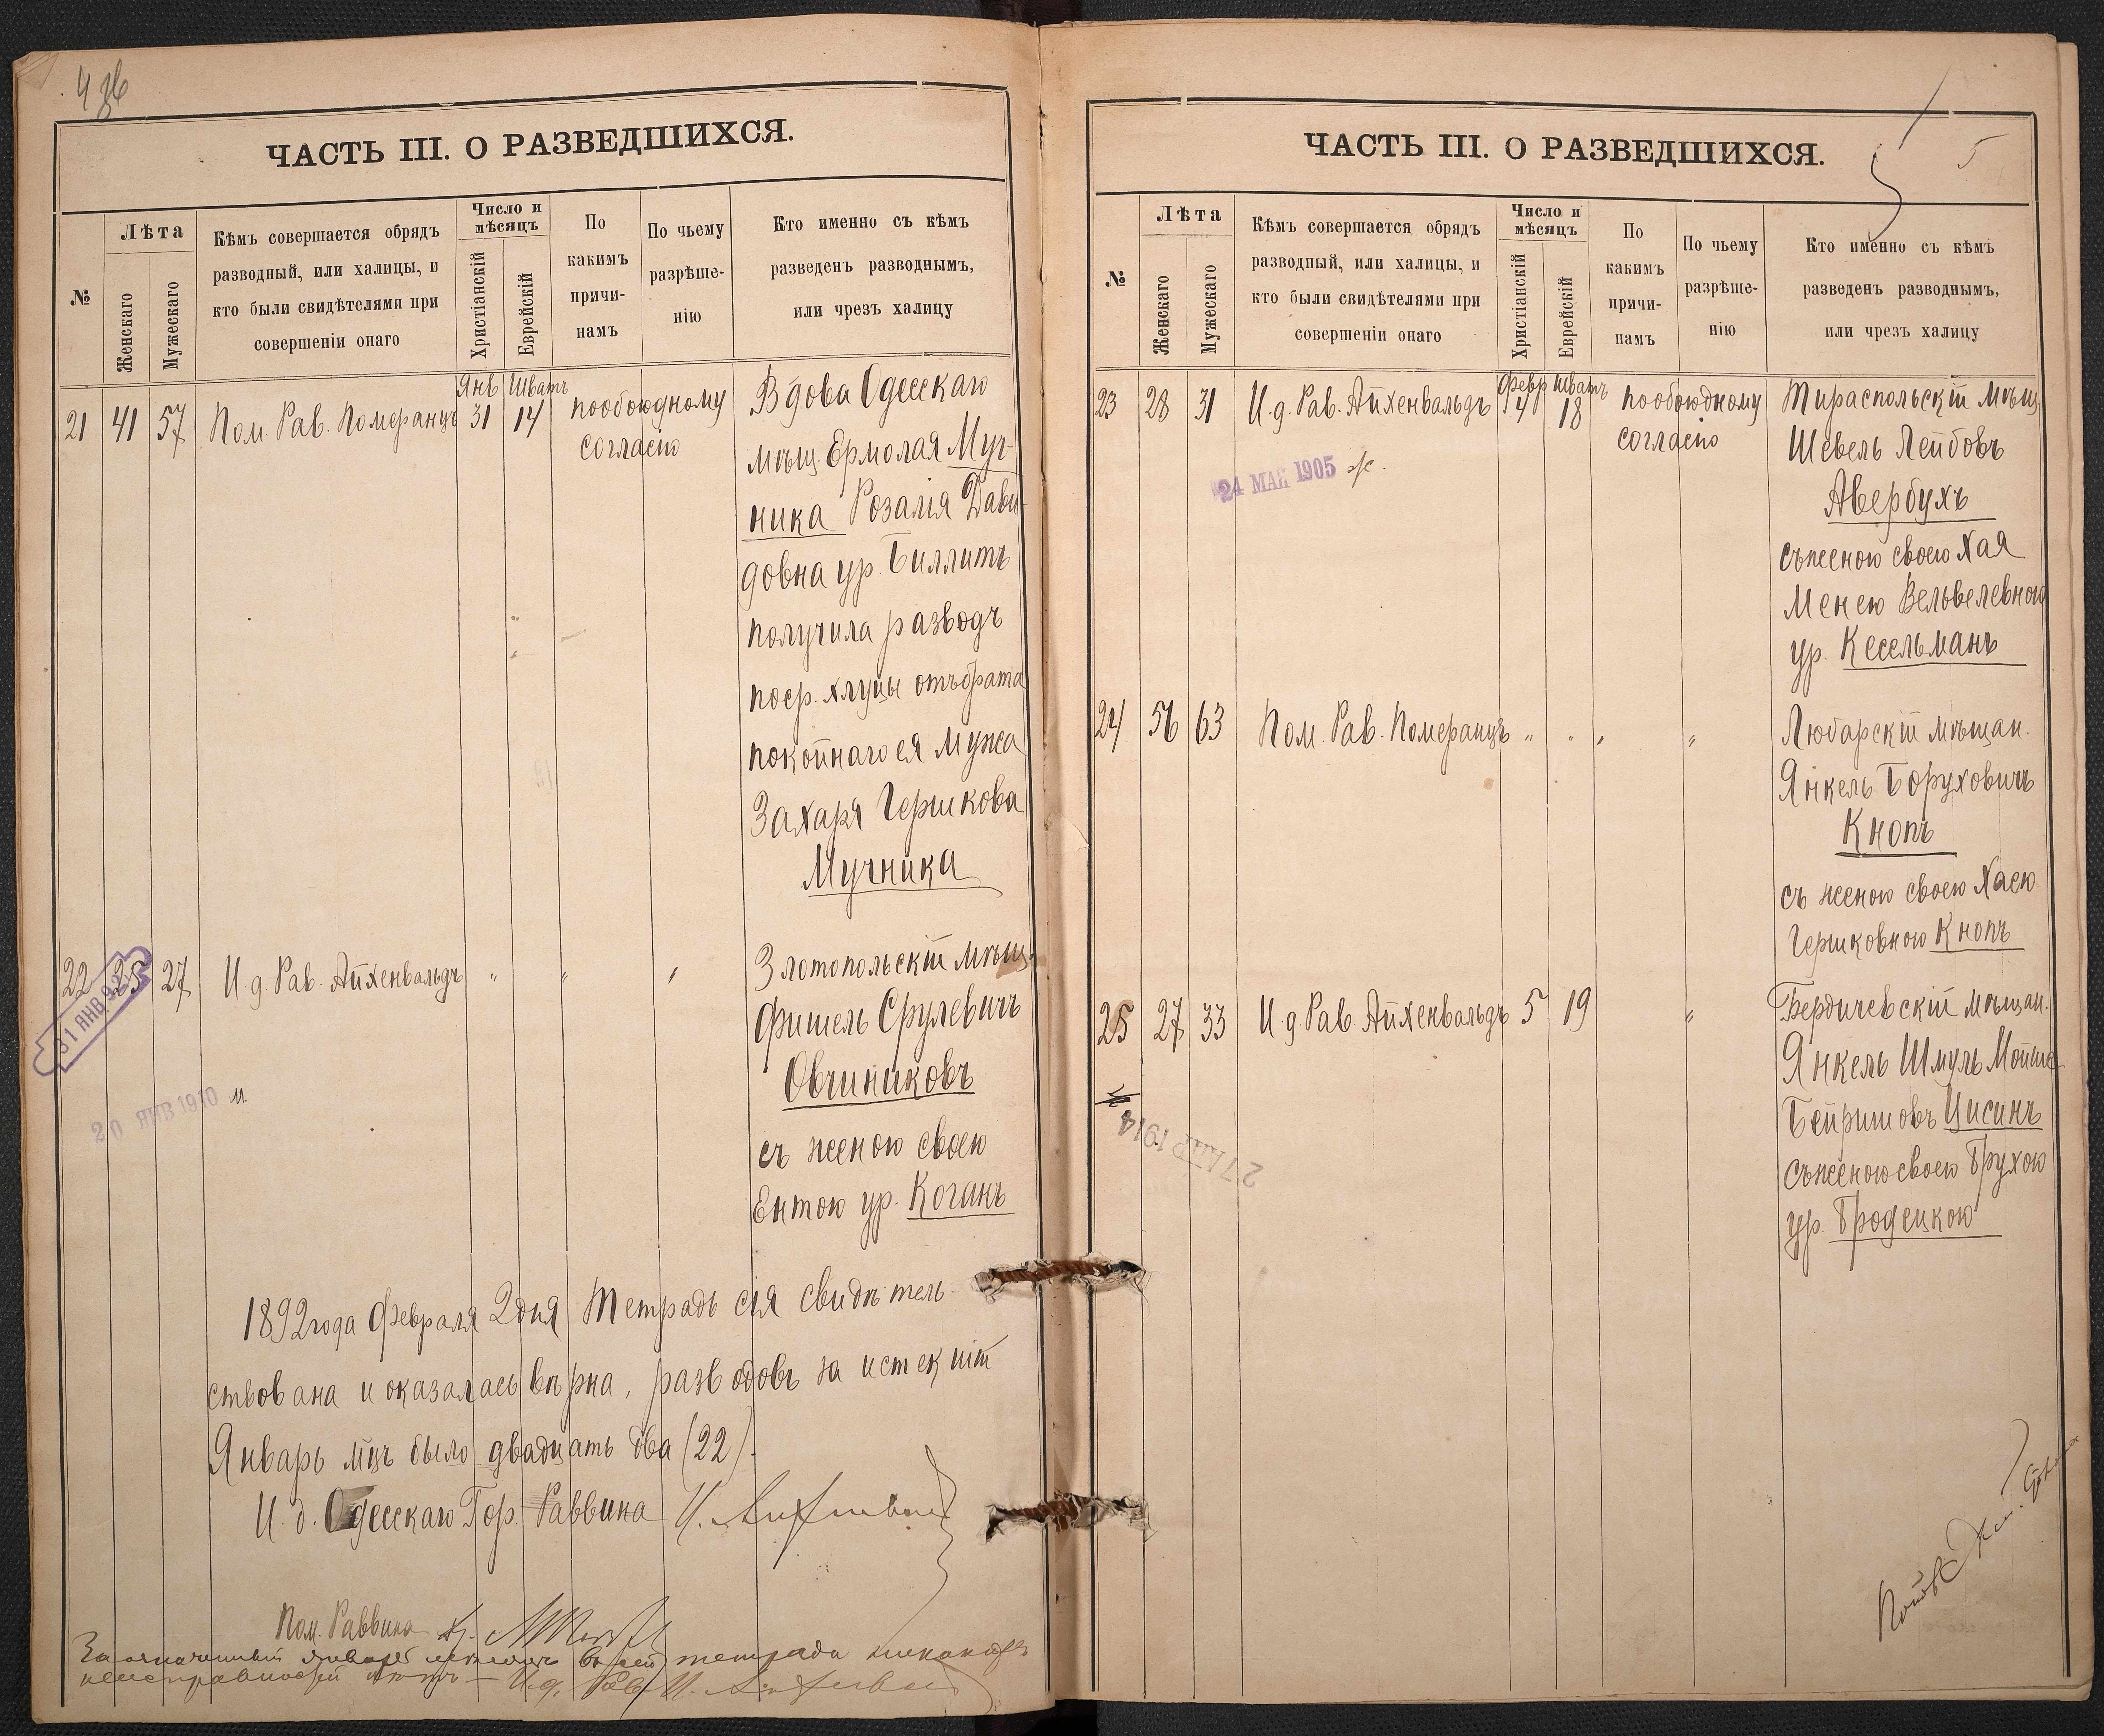 4 об
ЧАСТЬ III. О РАЗВЕДШИХСЯ.
№
Лѣта
Женскаго
Мужескаго
Кѣмъ совершается обрядъ
разводный, или халицы, и
кто были свидѣтелями при
совершеніи онаго
Число и
мѣсяцъ
Христіанскій
Еврейскій
По
какимъ
причи-
намъ
По чьему
разрѣше-
нію
Кто именно съ кѣмъ
разведенъ разводнымъ,
или чрезъ халицу
Янв Шватъ
21 41 57 Пом. Рав. Померанцъ 31 14 пообоюдному
согласію
Вдова Одесскаго
мѣщ. Ермолая Муч-
ника Розалія Дави-
довна ур. Биллитъ
получила разводъ
поср. хлуцы отъ брата
покойнаго ея мужа
Захаря Гершкова
Мучника
22 25 27 И. д. Рав. Айхенвальдъ " " "
Злотопольскій мѣщ.
Фишель Срулевичъ
Овчиниковъ
съ женою своею
Ентою ур. Коганъ
31 ЯНВ 92
20 ЯНВ 1910 м.
1892 года Февраля 2 дня Тетрадь сія свидѣтель-
ствована и оказалась вѣрна, разводовъ за истекшій
Январь мцъ было двадцать два (22).
И. д. Одесскаго Гор. Раввина
Пом. Раввина
тетради
И. д. Рав.
ЧАСТЬ III. О РАЗВЕДШИХСЯ.
5
№
Лѣта
Женскаго
Мужескаго
Кѣмъ совершается обрядъ
разводный, или халицы, и
кто были свидѣтелями при
совершеніи онаго
Число и
мѣсяцъ
Христіанскій
Еврейскій
По
какимъ
причи-
намъ
По чьему
разрѣше-
нію
Кто именно съ кѣмъ
разведенъ разводнымъ,
или чрезъ халицу
Февр Шватъ
23 28 31 И. д. Рав. Айхенвальдъ 4 18 пообоюдному
согласію
24 МАЙ 1905 ж.
Тираспольскій мѣщ.
Шевель Лейбовъ
Авербухъ
съ женою своею Хая
Менею Вельвелевною
ур. Кесельманъ
24 56 63 Пом. Рав. Померанцъ " " " "
Любарскій мѣщан.
Янкель Боруховичъ
Кнопъ
съ женою своею Хаею
Гершковною Кнопъ
25 27 33 И. д. Рав. Айхенвальдъ 5 19 "
27 АПР 1914
Бердичевскій мѣщан.
Янкель Шмуль Мойше
Бейришовъ Цисинъ
съ женою своею Брухою
ур. Бродецкою